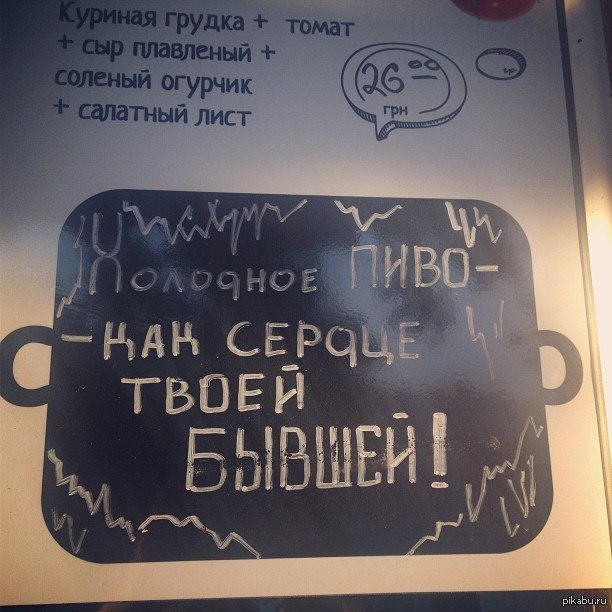 Куриная грудка + томат
+ сыр плавленый +
соленый огурчик
+ салатный лист
26 00
грн
Холодное ПИВО-
-КАК СЕРДЦЕ
ТВОЕЙ
БЫВШЕЙ!
pikabu.ru